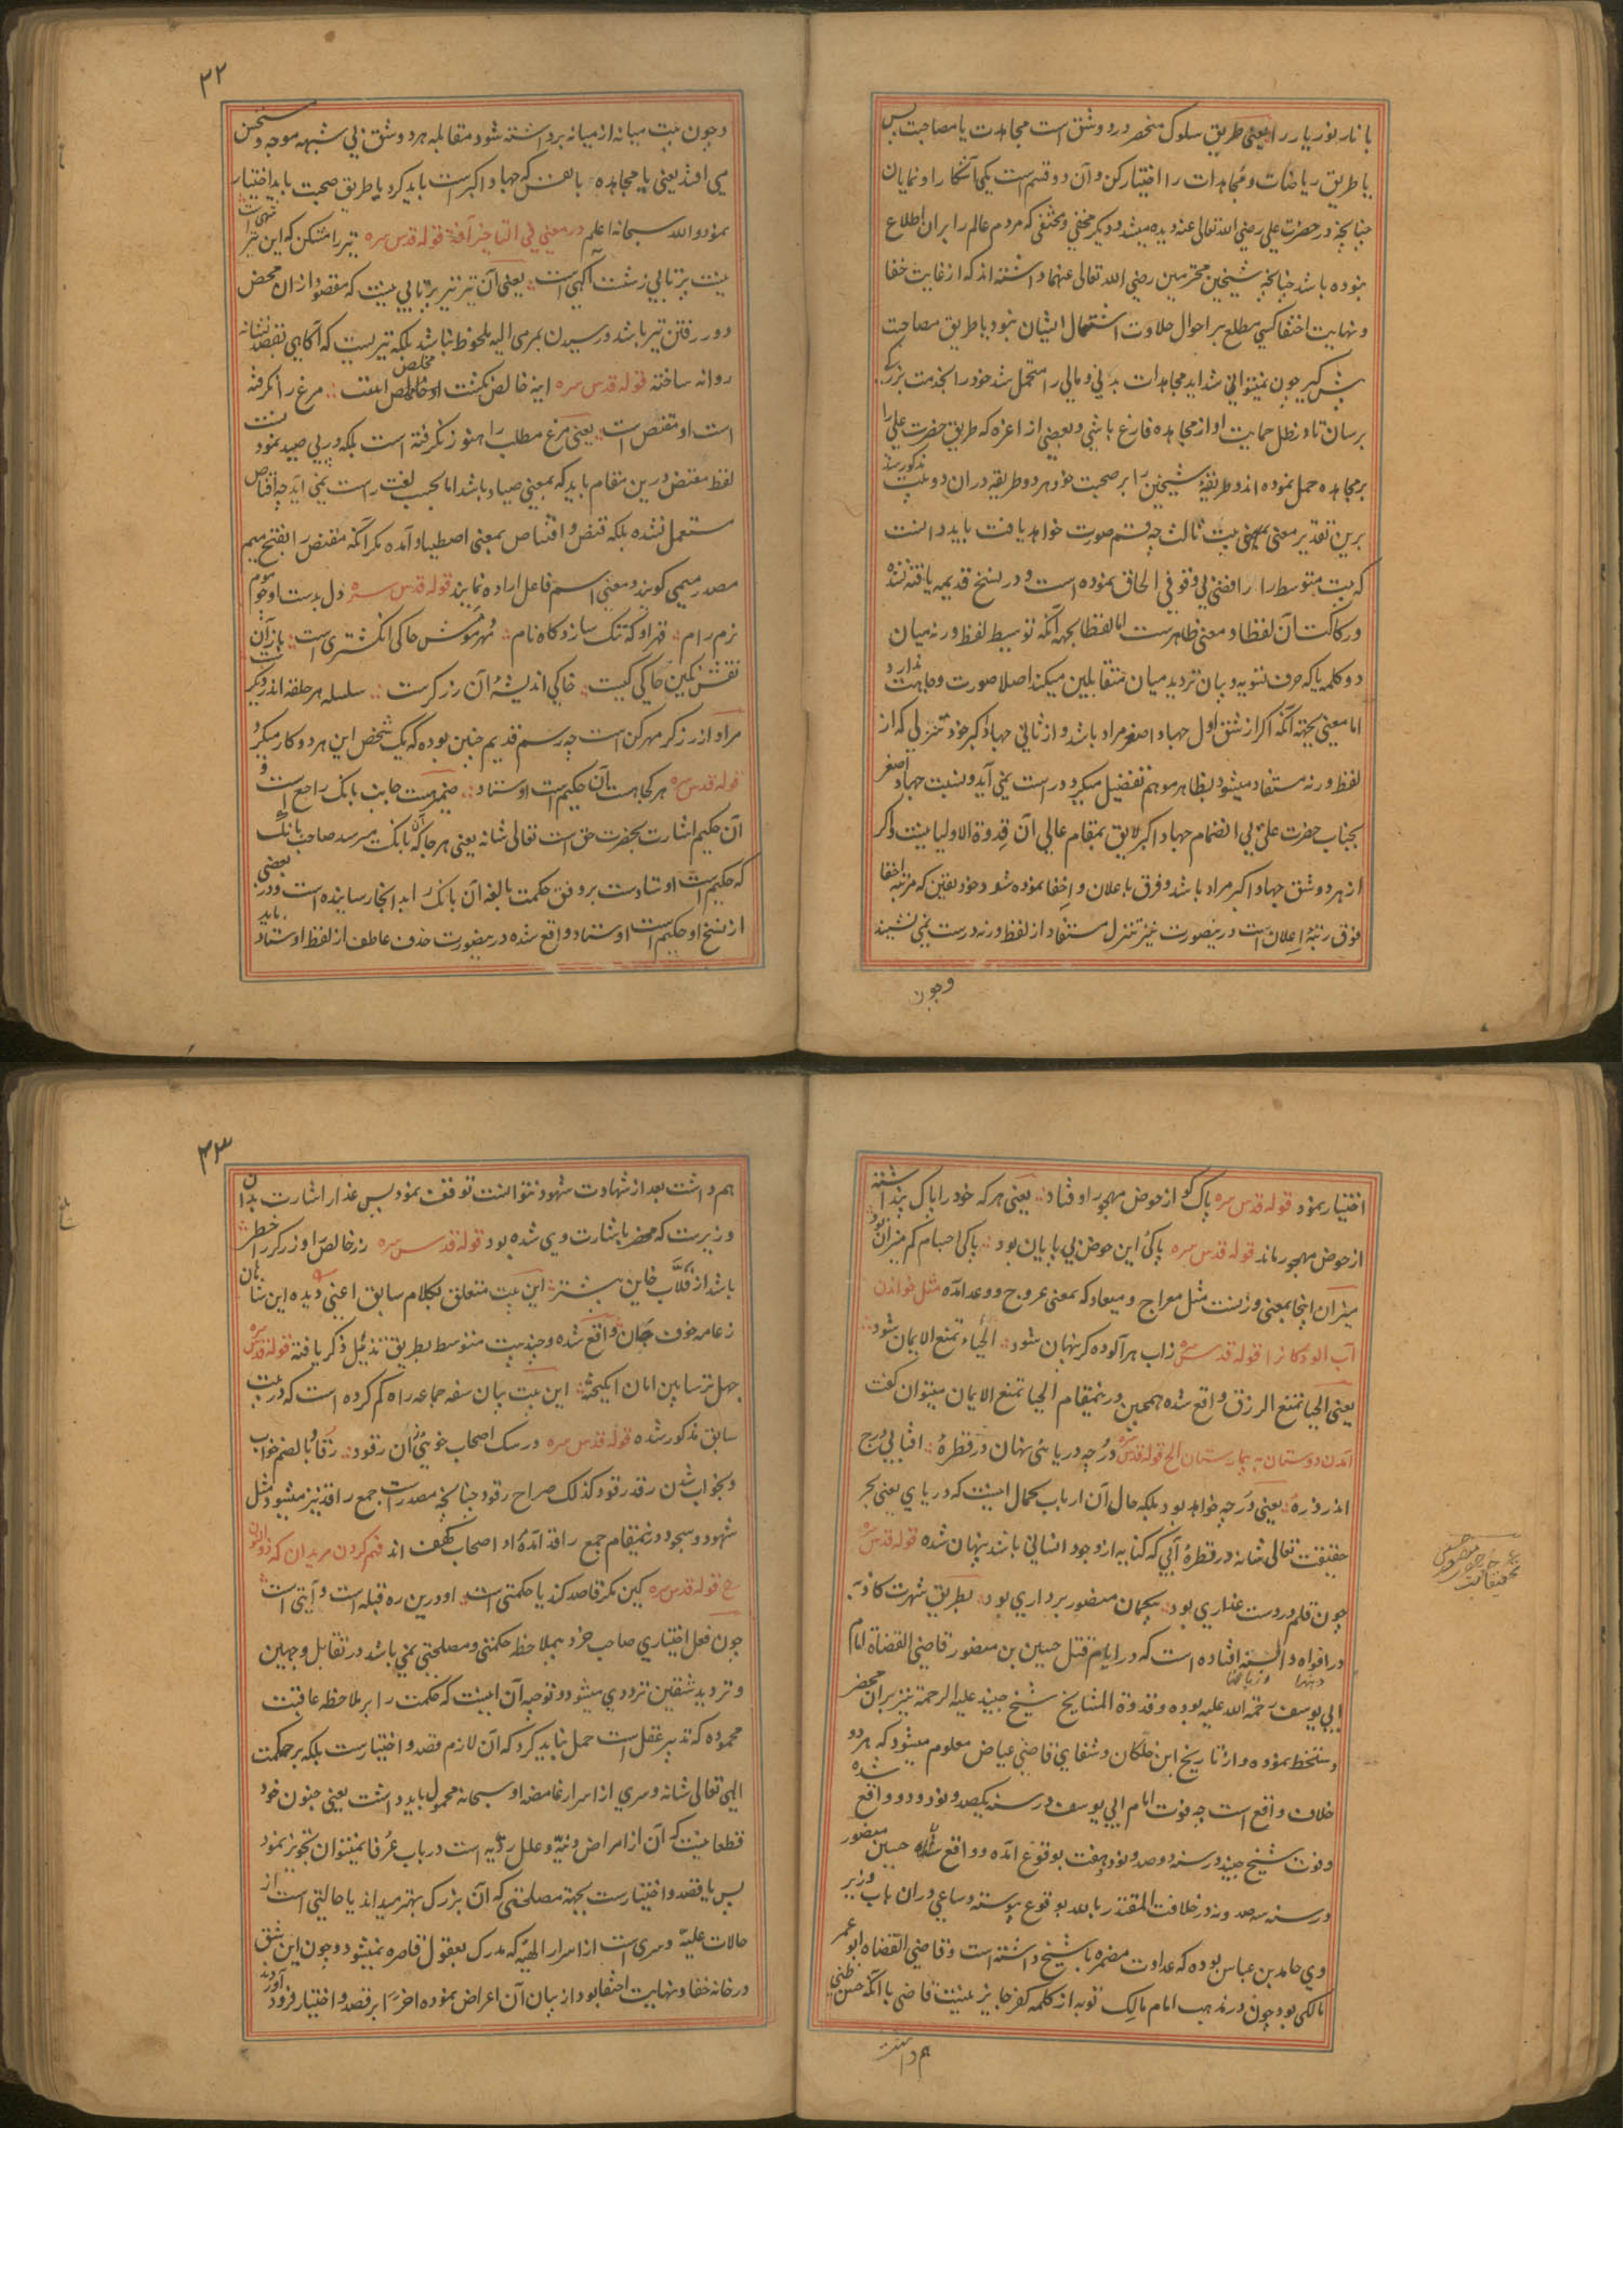 با نار نور یار را یعنی طریق سلوک منحصر در دو شق است مجاهدت یا مصاحبت پس
یا طریق ریاضات و مجاهدات را اختیار کن و آن دو قسم است یکی آشکارا و نمایان
چنانچه در حضرت علی رضی الله تعالی عنه دیده میشد و دیگر مخفی و مختفی که مردم عالم را بر آن اطلاع
نبوده باشد چنانچه شیخین محترمین رضی الله تعالی عنهما داشته اند که از غایت خفا
و نهایت اختفا کسی مطلع بر احوال حلاوت اشتمال ایشان نبود یا طریق مصاحبت
پیش گیر چون نمیتوانی شداید مجاهدات بدنی و مالی را متحمل شد خود را بخدمت بزرگی
برسان تا در ظل حمایت او از مجاهده فارغ باشی و بعضی از اعزه که طریق حضرت علی را
بر مجاهده حمل نموده اند و طریقهٔ شیخین را بر صحبت خود هر دو طریقه در آن دو بیت مذکور شد
برین تقدیر معنی بیت ثالث چه قسم صورت خواهد یافت باید دانست
که بیت متوسط را رافضی بی وقوفی الحاق نموده است و در نسخ قدیمه یافته نشده
و رکاکت آن لفظا و معنی ظاهرست اما لفظا بجهه آنکه توسیط لفظ ورنه میان
دو کلمه یا که حرف تسویه و بیان تردید میان متقابلین میکند اصلا صورت وجاهت ندارد
اما معنی بجهته آنکه اگر از شق اول جهاد اصغر مراد باشد و از ثانی جهاد اکبر خود تنزلی که از
لفظ ورنه مستفاد میشود بظاهر موهم تفضیل میگردد راست نمی آید و نسبت جهاد اصغر
بجناب حضرت علی بی انضمام جهاد اکبر لایق بمقام عالی آن قدوة الاولیا نیست و اگر
از هر دو شق جهاد اکبر مراد باشد و فرق باعلان و اخفا نموده شود خود یقین که مرتبه اخفا
فوق رتبهٔ اعلان است درینصورت نیز تنزل مستفاد از لفظ ورنه درست نمی نشیند
وچون
۳۲
و چون بیت میانه از میانه برداشته شود مقابله هر دو شق بی شبهه موجه و مستحسن
می افتد یعنی یا مجاهده با نفس که جهاد اکبر است باید کرد یا طریق صحبت باید اختیار
نمود والله سبحانه اعلم در معنی فی التاخیر آفة قوله قدس سره تیر را مشکن که این تیر شهی است
نیست پرتابی ز شست آگهی است یعنی آن تیر تیر پرتابی نیست که مقصود از آن محض
دور رفتن تیر باشد و رسیدن بمرمی الیه ملحوظ نباشد بلکه تیریست که آگاهی بقصد نشانه
روانه ساخته قوله قدس سره اینه خالص نگشت او مخلص است مرغ را نگرفته
است او مقنص است یعنی مرغ مطلب را هنوز نگرفته است بلکه در پی صید نمودنست
لفظ مقنص درین مقام باید که بمعنی صیاد باشد اما بحسب لغت راست نمی آید چه اقناص
مستعمل نشده بلکه قنص و اقتناص بمعنی اصطیاد آمده مگر آنکه مقنص را بفتح میم
مصدر میمی گویند و معنی اسم فاعل اراده نمایند قوله قدس سره دل بدست او چو موم
نرم رام قهر او که ننگ سازد گاه نام مهر مومش حاکی انگشتری است باز آن
نقش نگین حاکی کیست حاکی اندیشهٔ آن زرگرست سلسله هر حلقه اندر دیگر
مراد از زرگر مهرکن است چه رسم قدیم چنین بوده که یک شخص این هر دو کار میکرد
قوله قدس سره هر کجا هست آن حکیم است اوستاد ضمیر هست جانب بانک راجع است و
آن حکیم اشارت بحضرت حق است تعالی شانه یعنی هر جا که آن بانک میرسد صاحب بانگ
که حکیم است اوستادست بر وفق حکمت بالغه آن بانک را بدانجا رسانیده است و در بعضی
از نسخ او حکیم است اوستاد واقع شده درینصورت حذف عاطف از لفظ اوستاد باید
اختیار نمود قوله قدس سره پاک کو از حوض مهجور اوفتاد یعنی هر که خود را پاک پنداشته
از حوض مهجور ماند قوله قدس سره پاکی این حوض بی پایان بود پاکی اجسام کم میزان بود
میزان اینجا بمعنی وزنست مثل معراج و میعاد که بمعنی عروج و وعد آمده مثل خواندن
آب آلودگانرا قوله قدس سره ز آب هر آلوده کر پنهان شود الحیاء تمنع الایمان شود
یعنی الحیا تمنع الرزق واقع شده همچنین درینمقام الحیا تمنع الایمان میتوان گفت
آمدن دوستان به بیمارستان الخ قوله قدس سره در چه دریائی نهان در قطرهٔ آفتابی درج
اندر ذرهٔ یعنی در چه خواهد بود بلکه حال آن ارباب کمال اینست که دریای یعنی بحر
حقیقت تعالی شانه در قطرهٔ آبی که کنایه از وجود انسانی باشد پنهان شده قوله قدس سره
چون قلم در دست غداری بود بیگمان منصور بر داری بود بطریق شهرت کاذبه
در افواه و السنه افتاده است که در ایام قتل حسین بن منصور قاضی القضاة امام
ابی یوسف رحمة الله علیه بوده و قدوة المشایخ شیخ جنید علیه الرحمة نیز بر آن محضر
دستخط نموده و از تاریخ ابن خلکان و شفای قاضی عیاض معلوم میشود که هر دو
خلاف واقع است چه فوت امام ابی یوسف در سنه یکصد و نود و دو واقع شده
و فوت شیخ جنید در سنه دوصد و نود و هفت بوقوع آمده و واقعهٔ حسین منصور
در سنه سه صد و نه در خلافت المقتدر بالله بوقوع پیوسته و ساعی در آن باب وزیر
وی حامد بن عباس بوده که عداوت مضمره با شیخ داشته است و قاضی القضاه ابو عمر
مالکی بود چون در مذهب امام مالک توبه از کلمه کفر جایز نیست قاضی با آنکه حسن ظنی
هم داشت
تحقیقات
۳۳
هم داشت بعد از شهادت شهود نتوانست توقف نمود پس غدار اشارت بدان
وزیرست که محضر باشارت وی شده بود قوله قدس سره زر خالص را و زرگر را خطر
باشد از قلّاب خاین بیشتر این بیت متعلق بکلام سابق اعنی دیده این شاهان
ز عامه خوف جان واقع شده و چند بیت متوسط بطریق تذییل ذکر یافته قوله قدس سره
جهل ترسا بین امان انگیخته این بیت بیان سفه جماعه راه گم کرده است که در بیت
سابق مذکور شده قوله قدس سره در سگ اصحاب خوئی زان رقود رقاد بالضم خواب
و بخواب شدن رقد رقود کذلک صراح رقود چنانچه مصدر است جمع راقد نیز میشود مثل
شهود و سجود درینمقام جمع راقد آمده و اصحاب کهف اند فهم کردن مریدان که ذوالنون
الخ قوله قدس سره کین مگر قاصد کند یا حکمتی است او درین ره قبله است و آیتی است
چون فعل اختیاری صاحب خرد بیملاحظه حکمتی و مصلحتی نمی باشد در تقابل وجهین
و تردید شقین ترددی میشود و توجیه آن اینست که حکمت را بر ملاحظه عاقبت
محموده که تدبیر عقل است حمل نباید کرد که آن لازم قصد و اختیارست بلکه بر حکمت
الهی تعالی شانه و سری از اسرار غامضه او سبحانه محمول باید داشت یعنی جنون خود
قطعا نیست که آن از امراض دنیّه و علل ردیه است در باب عرفا نمیتوان تجویز نمود
پس یا قصد و اختیارست بجهته مصلحتی که آن بزرک بهتر میداند یا حالتی است از
حالات علیّه و سری است از اسرار الهیّه که مدرک بعقول قاصره نمیشود و چون این شق
در خانه خفا و نهایت اختفا بود از بیان آن اعراض نموده اخر را بر قصد و اختیار فرود آورده